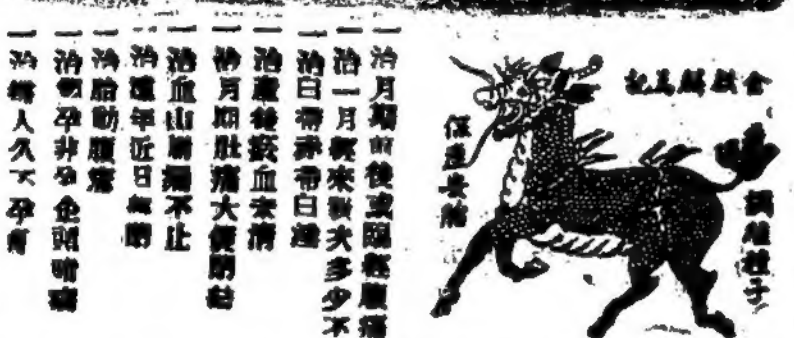 金麒麟爲記
調經種子
保產安胎
一治月期前後或臨經腹痛
一治一月經來數次多少不
一治白帶赤帶白淫
一治產後瘀血未清
一治月期肚痛大便閉結
一治血山崩漏不止
一治年近日
一治胎動腹痛
一治孕非孕
一治婦人久不孕育